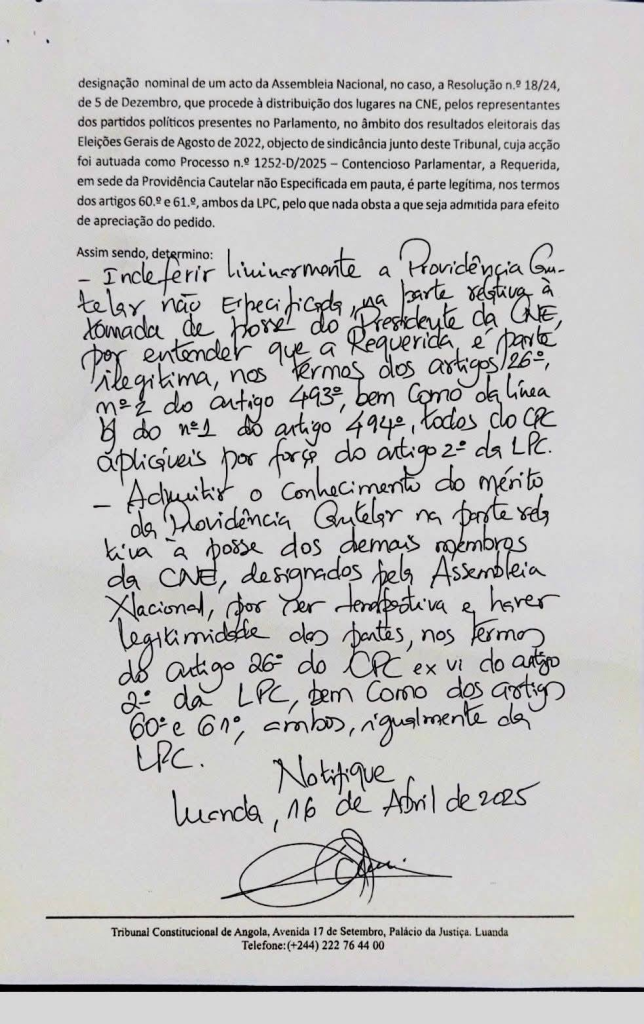 designação nominal de um acto da Assembleia Nacional, no caso, a Resolução n.º 18/24,
de 5 de Dezembro, que procede à distribuição dos lugares na CNE, pelos representantes
dos partidos políticos presentes no Parlamento, no âmbito dos resultados eleitorais das
Eleições Gerais de Agosto de 2022, objecto de sindicância junto deste Tribunal, cuja acção
foi autuada como Processo n.º 1252-D/2025 – Contencioso Parlamentar, a Requerida,
em sede da Providência Cautelar não Especificada em pauta, é parte legítima, nos termos
dos artigos 60.º e 61.º, ambos da LPC, pelo que nada obsta a que seja admitida para efeito
de apreciação do pedido.
Assim sendo, determino:
– Indeferir liminarmente a Providência Cau-
telar não Especificada, na parte relativa à
tomada de posse do Presidente da CNE,
por entender que a Requerida, é parte
ilegítima, nos termos dos artigos 26º,
nº 2 do artigo 493º, bem como da línea
do nº 1 do artigo 494º, todos do CPC
aplicáveis por força do artigo 2º da LPC.
– Admitir o conhecimento do mérito
da Providência Cautelar na parte rela
tiva à posse dos demais membros
da CNE, designados pela Assembleia
Nacional, por ser tempestiva e haver
legitimidade das partes, nos termos
do artigo 26º do CPC ex vi do artigo
2º da LPC, bem como dos artigos
60º e 61º, ambos, igualmente da
LPC.
Notifique
Luanda, 16 de Abril de 2025
Tribunal Constitucional de Angola, Avenida 17 de Setembro, Palácio da Justiça. Luanda
Telefone:(+244) 222 76 44 00